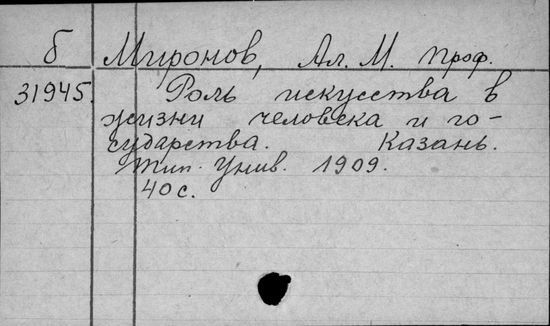 б Миронов, Ал. М. проф.
31945. Роль искусства в
жизни человека и го-
сударства. Казань.
Тип. Унив. 1909.
40 с.